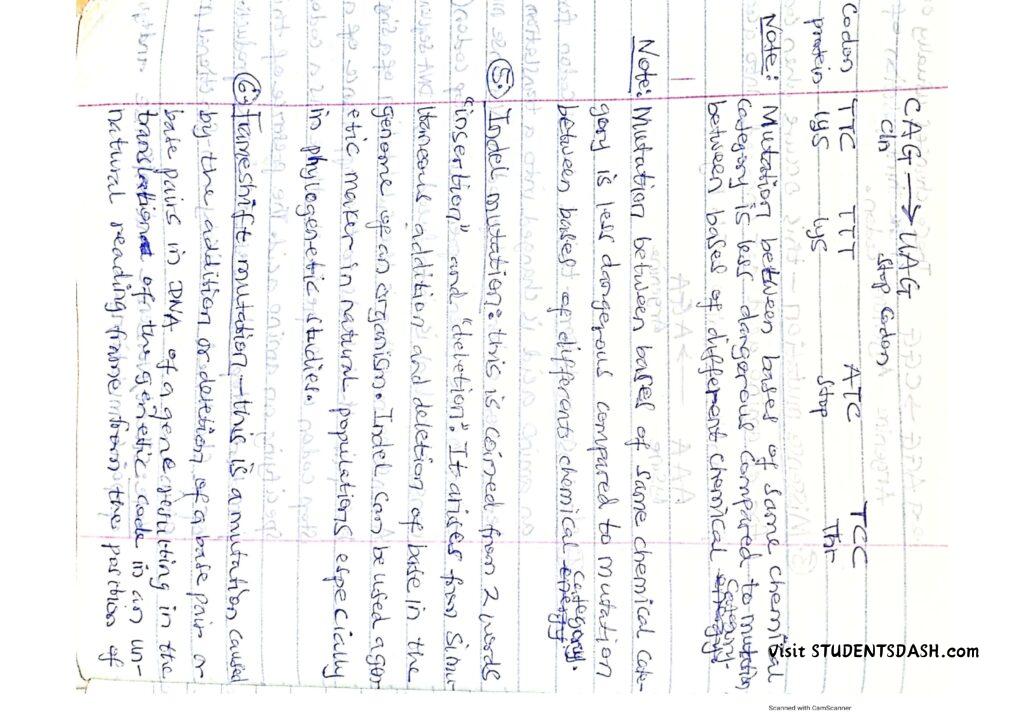 CAG → UAG
Gln stop codon
Codon TTC TTT ATC TCC
protein lys lys stop Thr
Note: Mutation between bases of same chemical
category is less dangerous compared to mutation
between bases of different chemical category.
Note: Mutation between bases of same chemical cate-
gory is less dangerous compared to mutation
between bases of differents chemical category.
5. Indel mutation: this is coined from 2 words
"insertion" and "deletion". It arises from simu-
ltaneous addition and deletion of base in the
genome of an organism. Indel can be used a gen
etic maker in natural populations especially
in phylogenetic studies.
6. Frameshift mutation - this is a mutation caused
by the addition or deletion of a base pair or
base pairs in DNA of a gene resulting in the
translation of the genetic code in an un-
natural reading frame from the position of
Visit STUDENTSDASH.com
Scanned with CamScanner